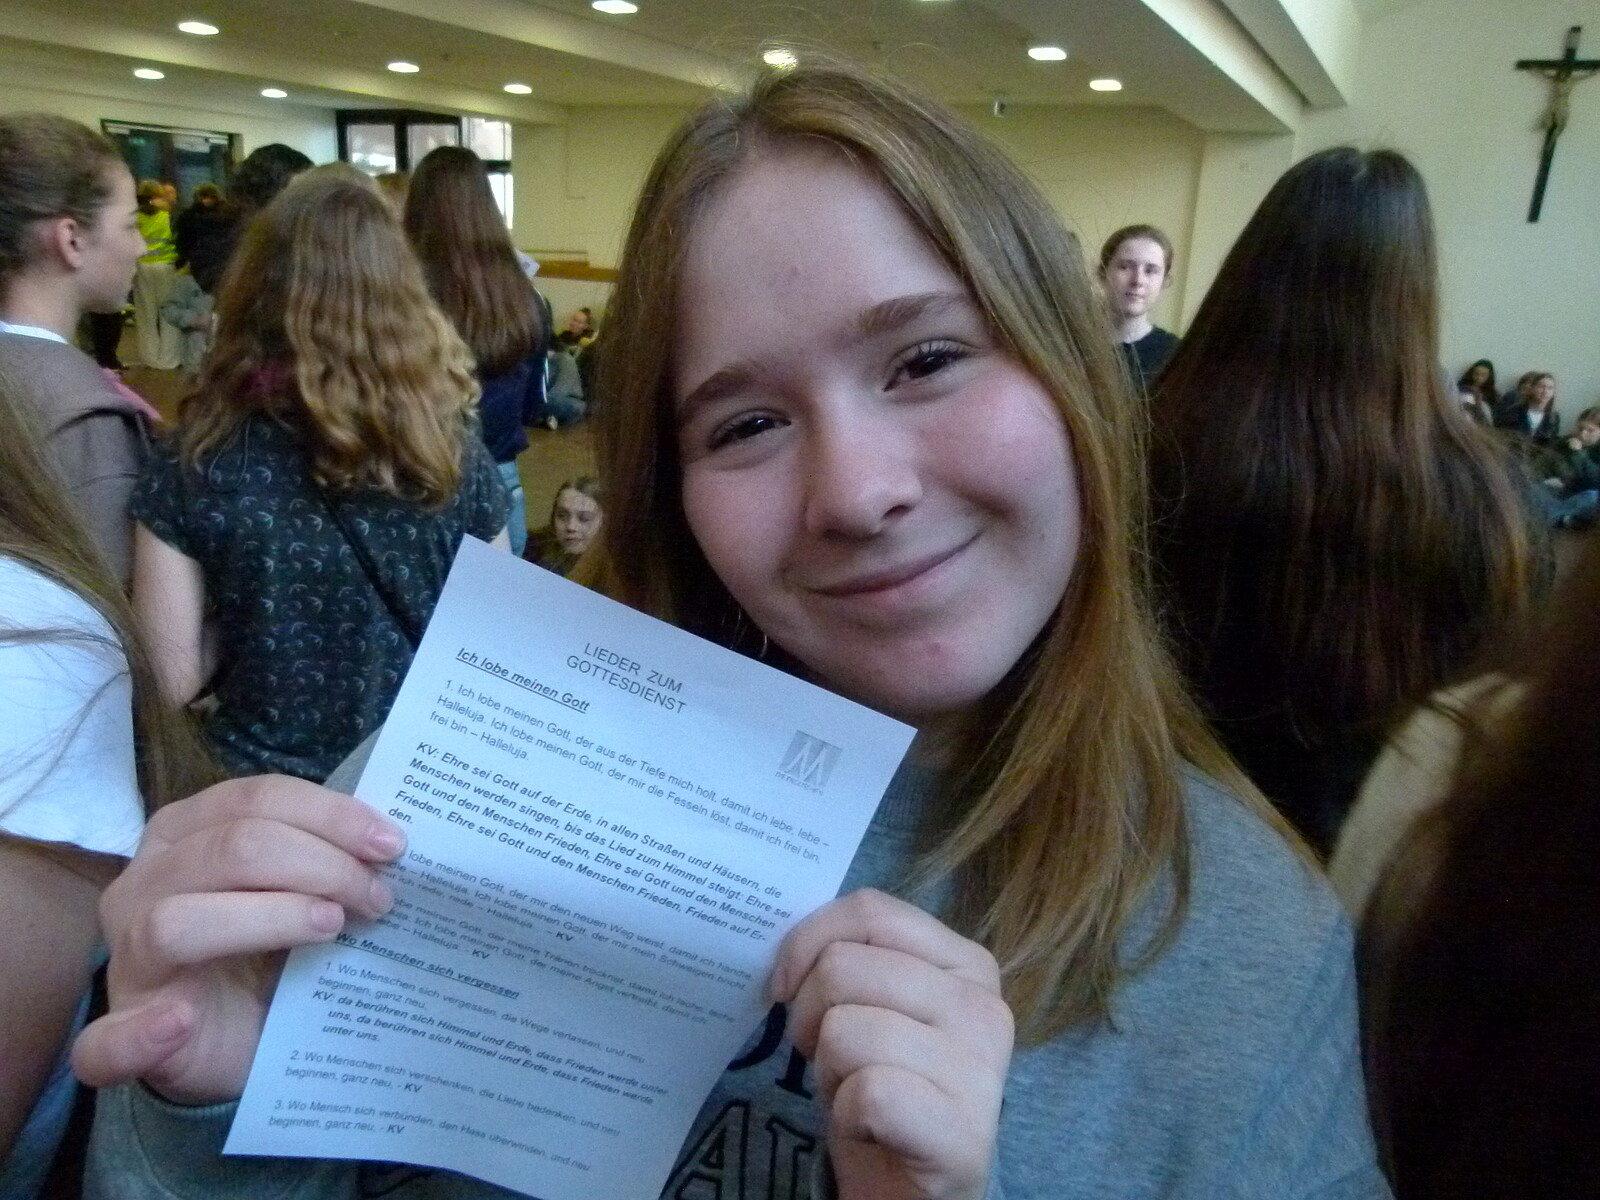 LIEDER ZUM
GOTTESDIENST
Ich lobe meinen Gott
1. Ich lobe meinen Gott, der aus der Tiefe mich holt, damit ich lebe, lebe –
Halleluja. Ich lobe meinen Gott, der mir die Fesseln löst, damit ich frei bin,
frei bin – Halleluja.
KV: Ehre sei Gott auf der Erde, in allen Straßen und Häusern, die
Menschen werden singen, bis das Lied zum Himmel steigt. Ehre sei
Gott und den Menschen Frieden, Ehre sei Gott und den Menschen
Frieden, Ehre sei Gott und den Menschen Frieden, Frieden auf Er-
den.
lobe meinen Gott, der mir den neuen Weg weist, damit ich handle,
– Halleluja. Ich lobe meinen Gott, der mir mein Schweigen bricht,
ich rede, rede – Halleluja. – KV
lobe meinen Gott, der meine Tränen trocknet, damit ich lache, lache
Ich lobe meinen Gott, der meine Angst vertreibt, damit ich
– Halleluja. - KV
Wo Menschen sich vergessen
1. Wo Menschen sich vergessen, die Wege verlassen, und neu
beginnen, ganz neu,
KV: da berühren sich Himmel und Erde, dass Frieden werde unter
uns, da berühren sich Himmel und Erde, dass Frieden werde
unter uns.
2. Wo Menschen sich verschenken, die Liebe bedenken, und neu
beginnen, ganz neu, - KV
3. Wo Mensch sich verbünden, den Hass überwinden, und neu
beginnen, ganz neu, - KV